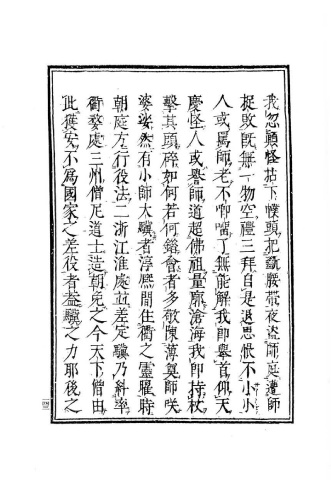 我忽顛怪拈下幞頭把[?]腰帶夜盜師庭遭師
捉敗旣無一物空禮三拜自是退思悵不小小
人或罵師老不唧𠺕了無能解我即舉首仰天
慶怪人或譽師道超佛祖量廓滄海我即持杖
擊其頭碎如何若何鎔會者多敬陳薄奠師咲
婆娑然有小師大驥者淳熈間住衢之靈耀時
朝庭方行役法二浙江淮處並差定驥乃糾率
衢婺處三州僧尼道士造朝免之今天下僧由
此獲安不爲國家之差役者葢驥之力耶後之